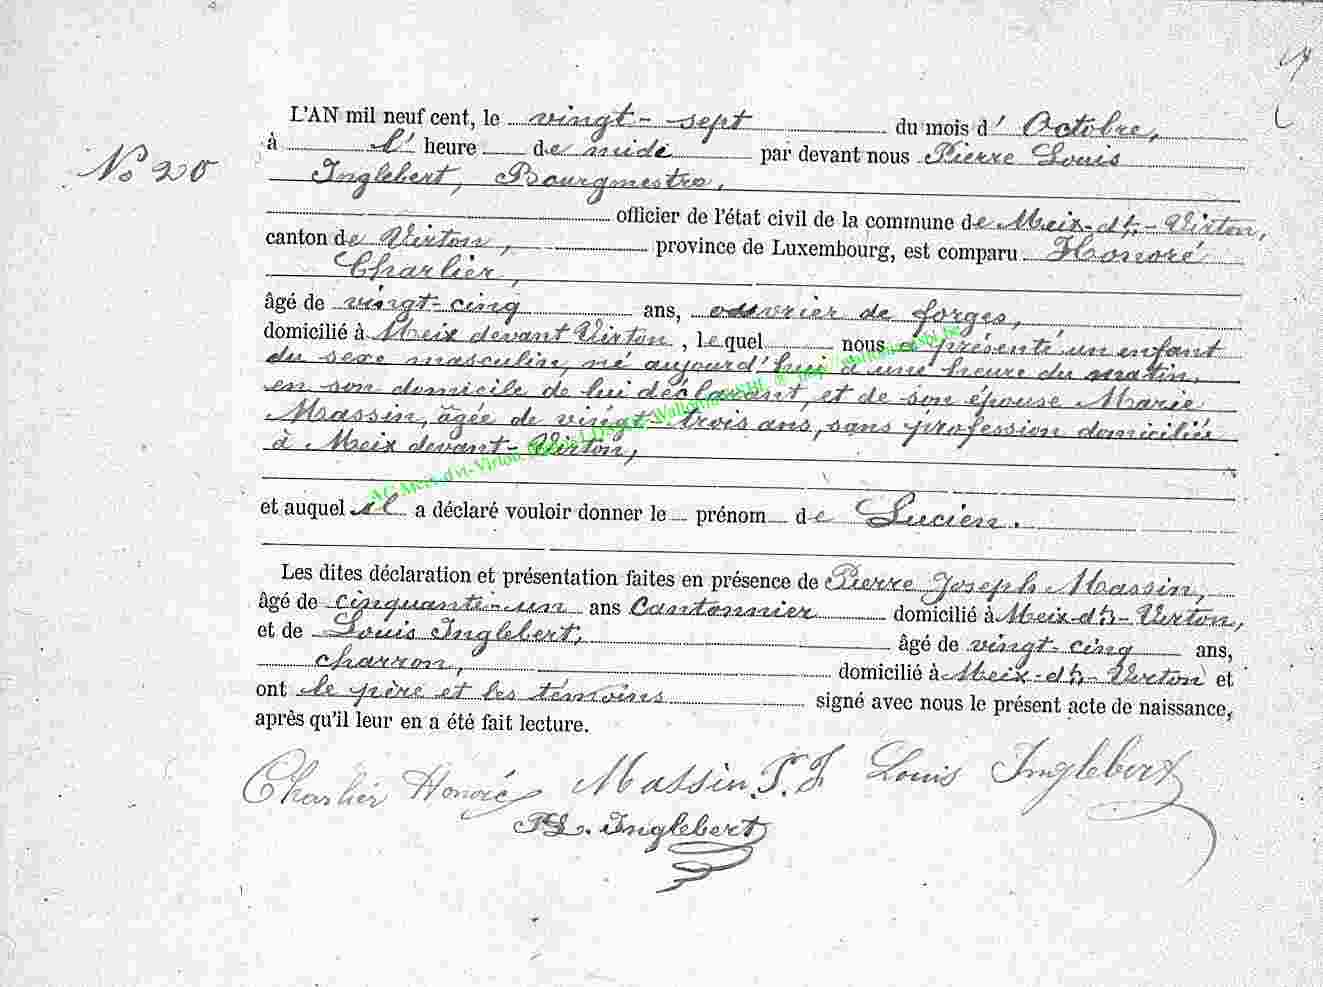 L'AN mil neuf cent, le vingt-sept du mois d' Octobre,
à l' heure de midi par devant nous Pierre Louis
No 20
Inglebert, Bourgmestre,
officier de l'état civil de la commune de Meix-dt-Virton,
canton de Virton, province de Luxembourg, est comparu Honoré
Charlier,
âgé de vingt-cinq ans, ouvrier de forges,
domicilié à Meix devant Virton, lequel nous a présenté un enfant
du sexe masculin, né aujourd'hui à une heure du matin,
en son domicile de lui déclarant, et de son épouse Marie
Massin, âgée de vingt-trois ans, sans profession domiciliée
à Meix devant-Virton,
et auquel il a déclaré vouloir donner le prénom de Lucien.
Les dites déclaration et présentation faites en présence de Pierre Joseph Massin,
âgé de cinquante-un ans Cantonnier domicilié à Meix-dt-Virton,
et de Louis Inglebert, âgé de vingt-cinq ans,
charron, domicilié à Meix-dt-Virton et
ont le père et les témoins signé avec nous le présent acte de naissance,
après qu'il leur en a été fait lecture.
Charlier Honoré Massin P. J Louis Inglebert
PL. Inglebert